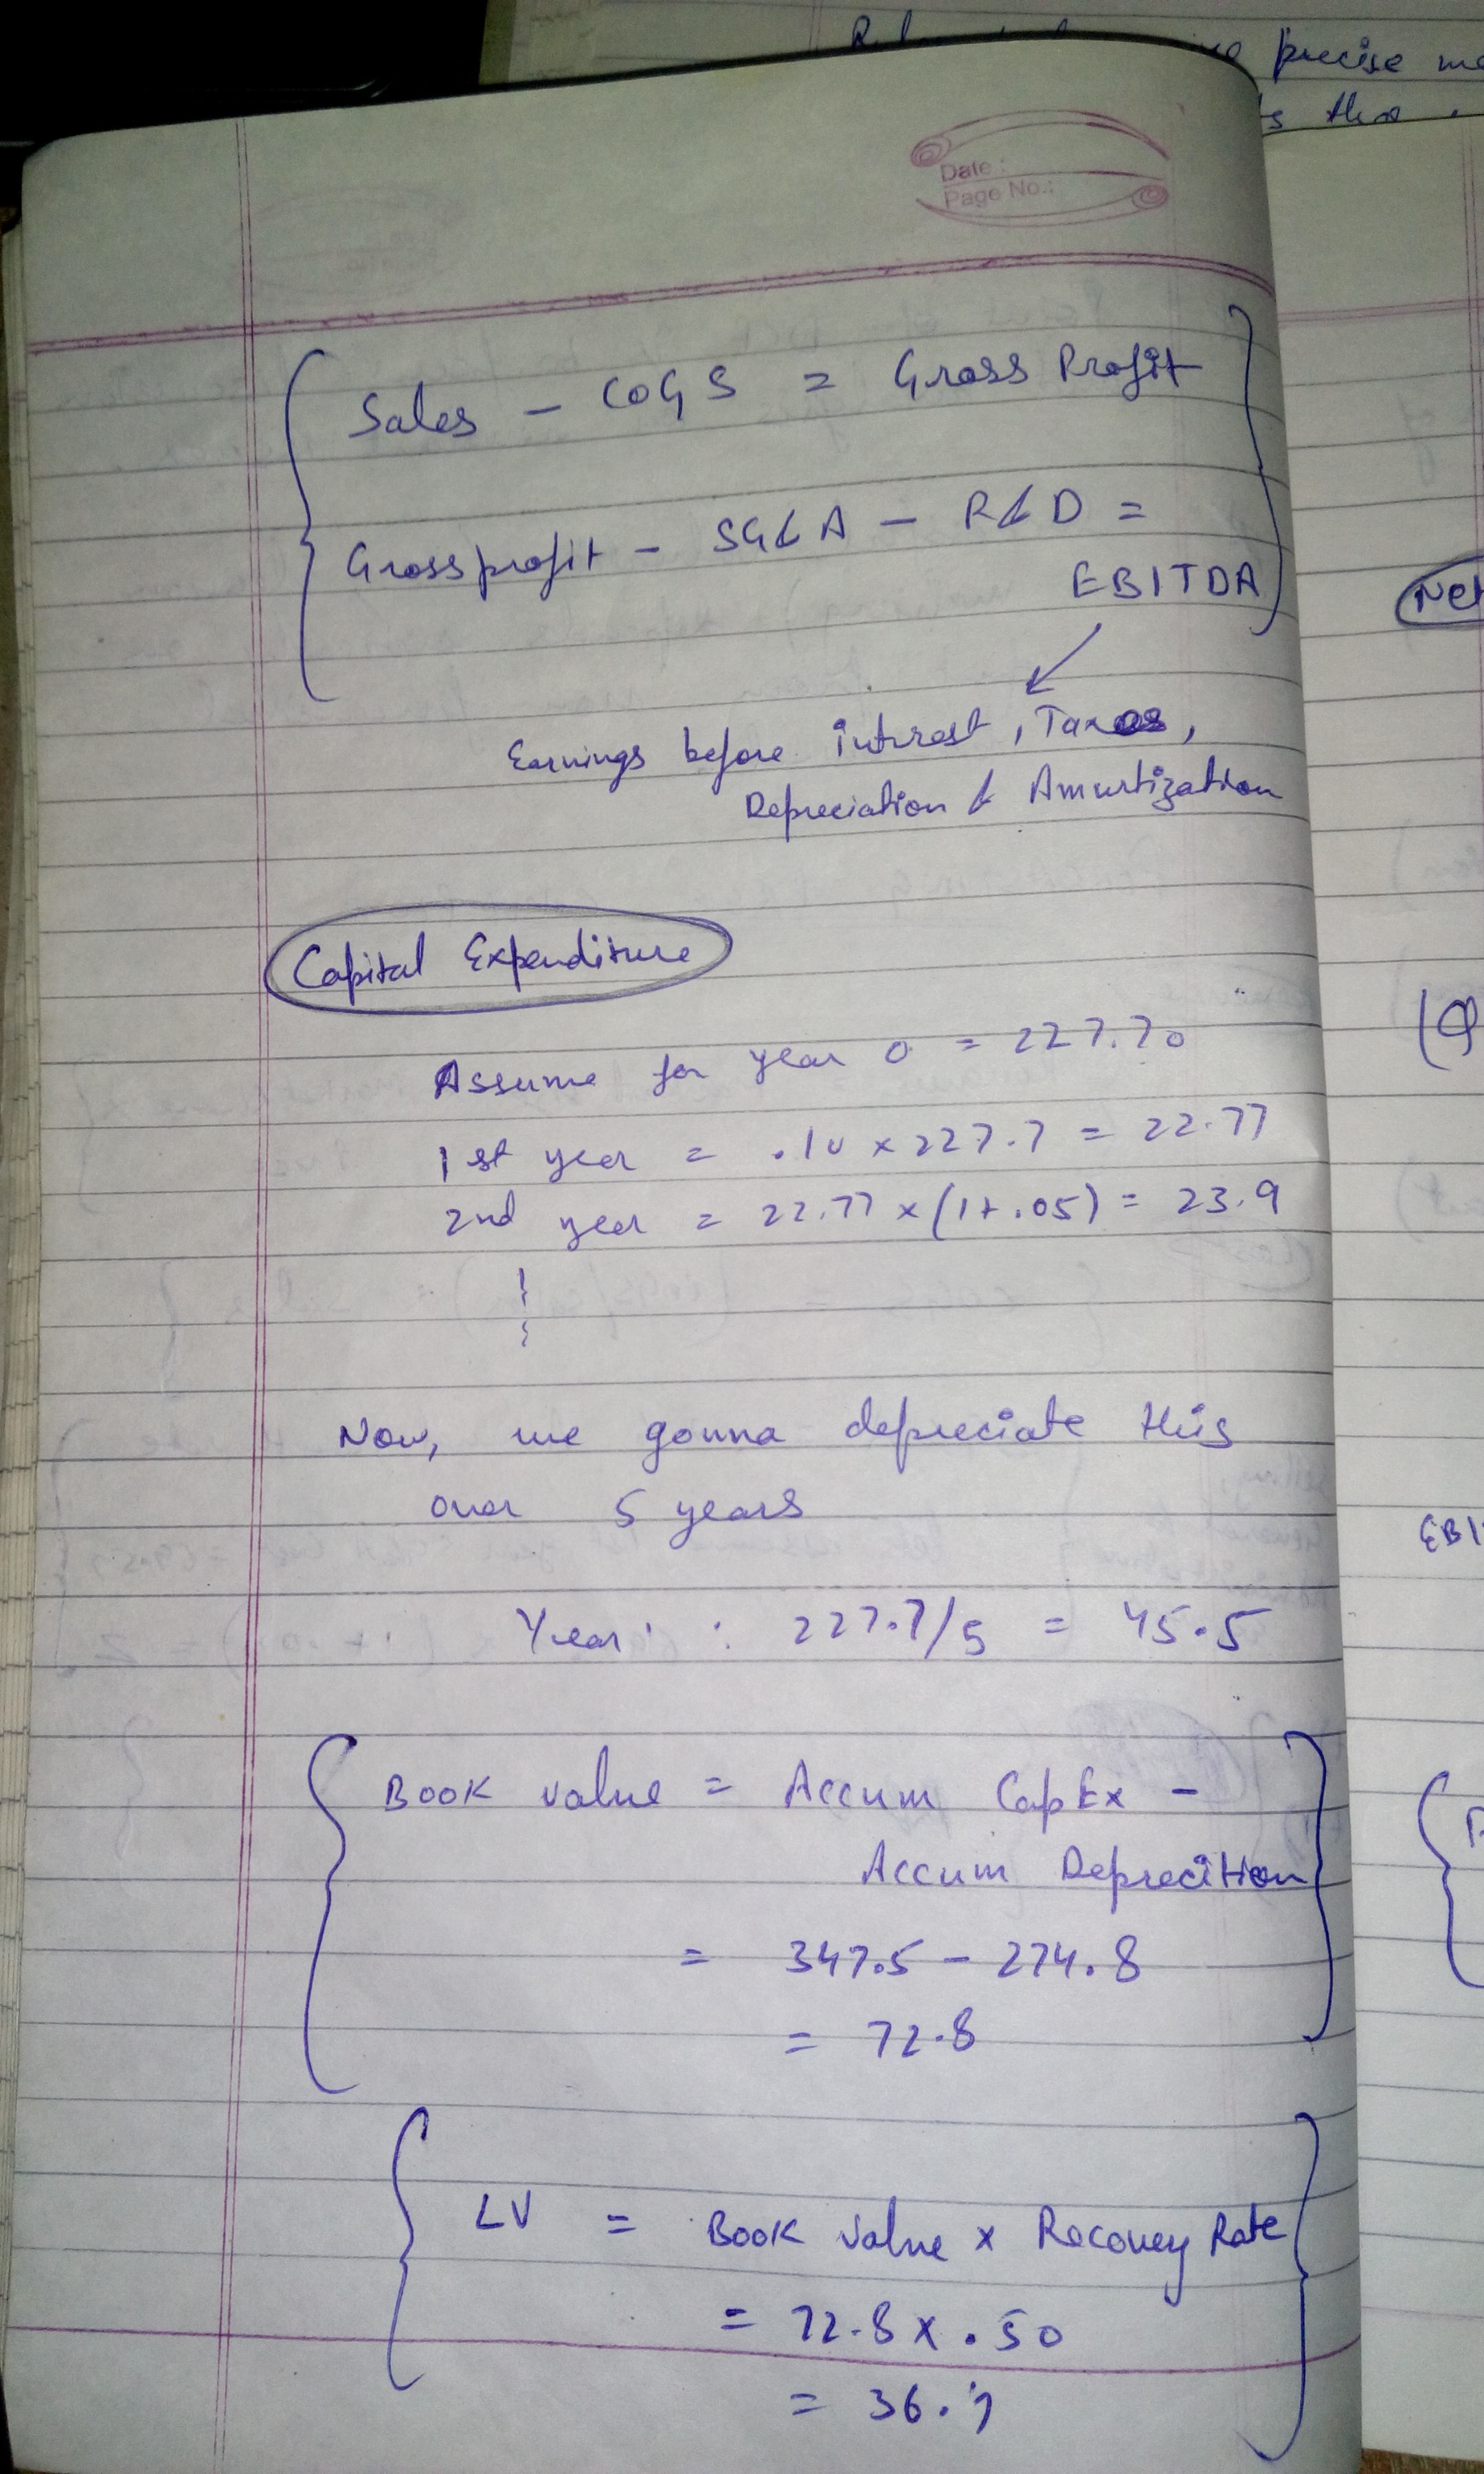 precise
Date :
Page No.:
Sales - COGS = Gross Profit
Gross profit - SG&A - R&D =
EBITDA
Earnings before interest, Taxes,
Depreciation & Amurtization
Capital Expenditure
Assume for year 0 = 227.70
1st year = .10 x 227.7 = 22.77
2nd year = 22.77 x (1+.05) = 23.9
Now, we gonna depreciate this
over 5 years
Year : 227.7/5 = 45.5
Book value = Accum CapEx -
Accum Deprecition
= 347.5 - 274.8
= 72.8
LV = Book value x Recovey Rate
= 72.8 x .50
= 36.